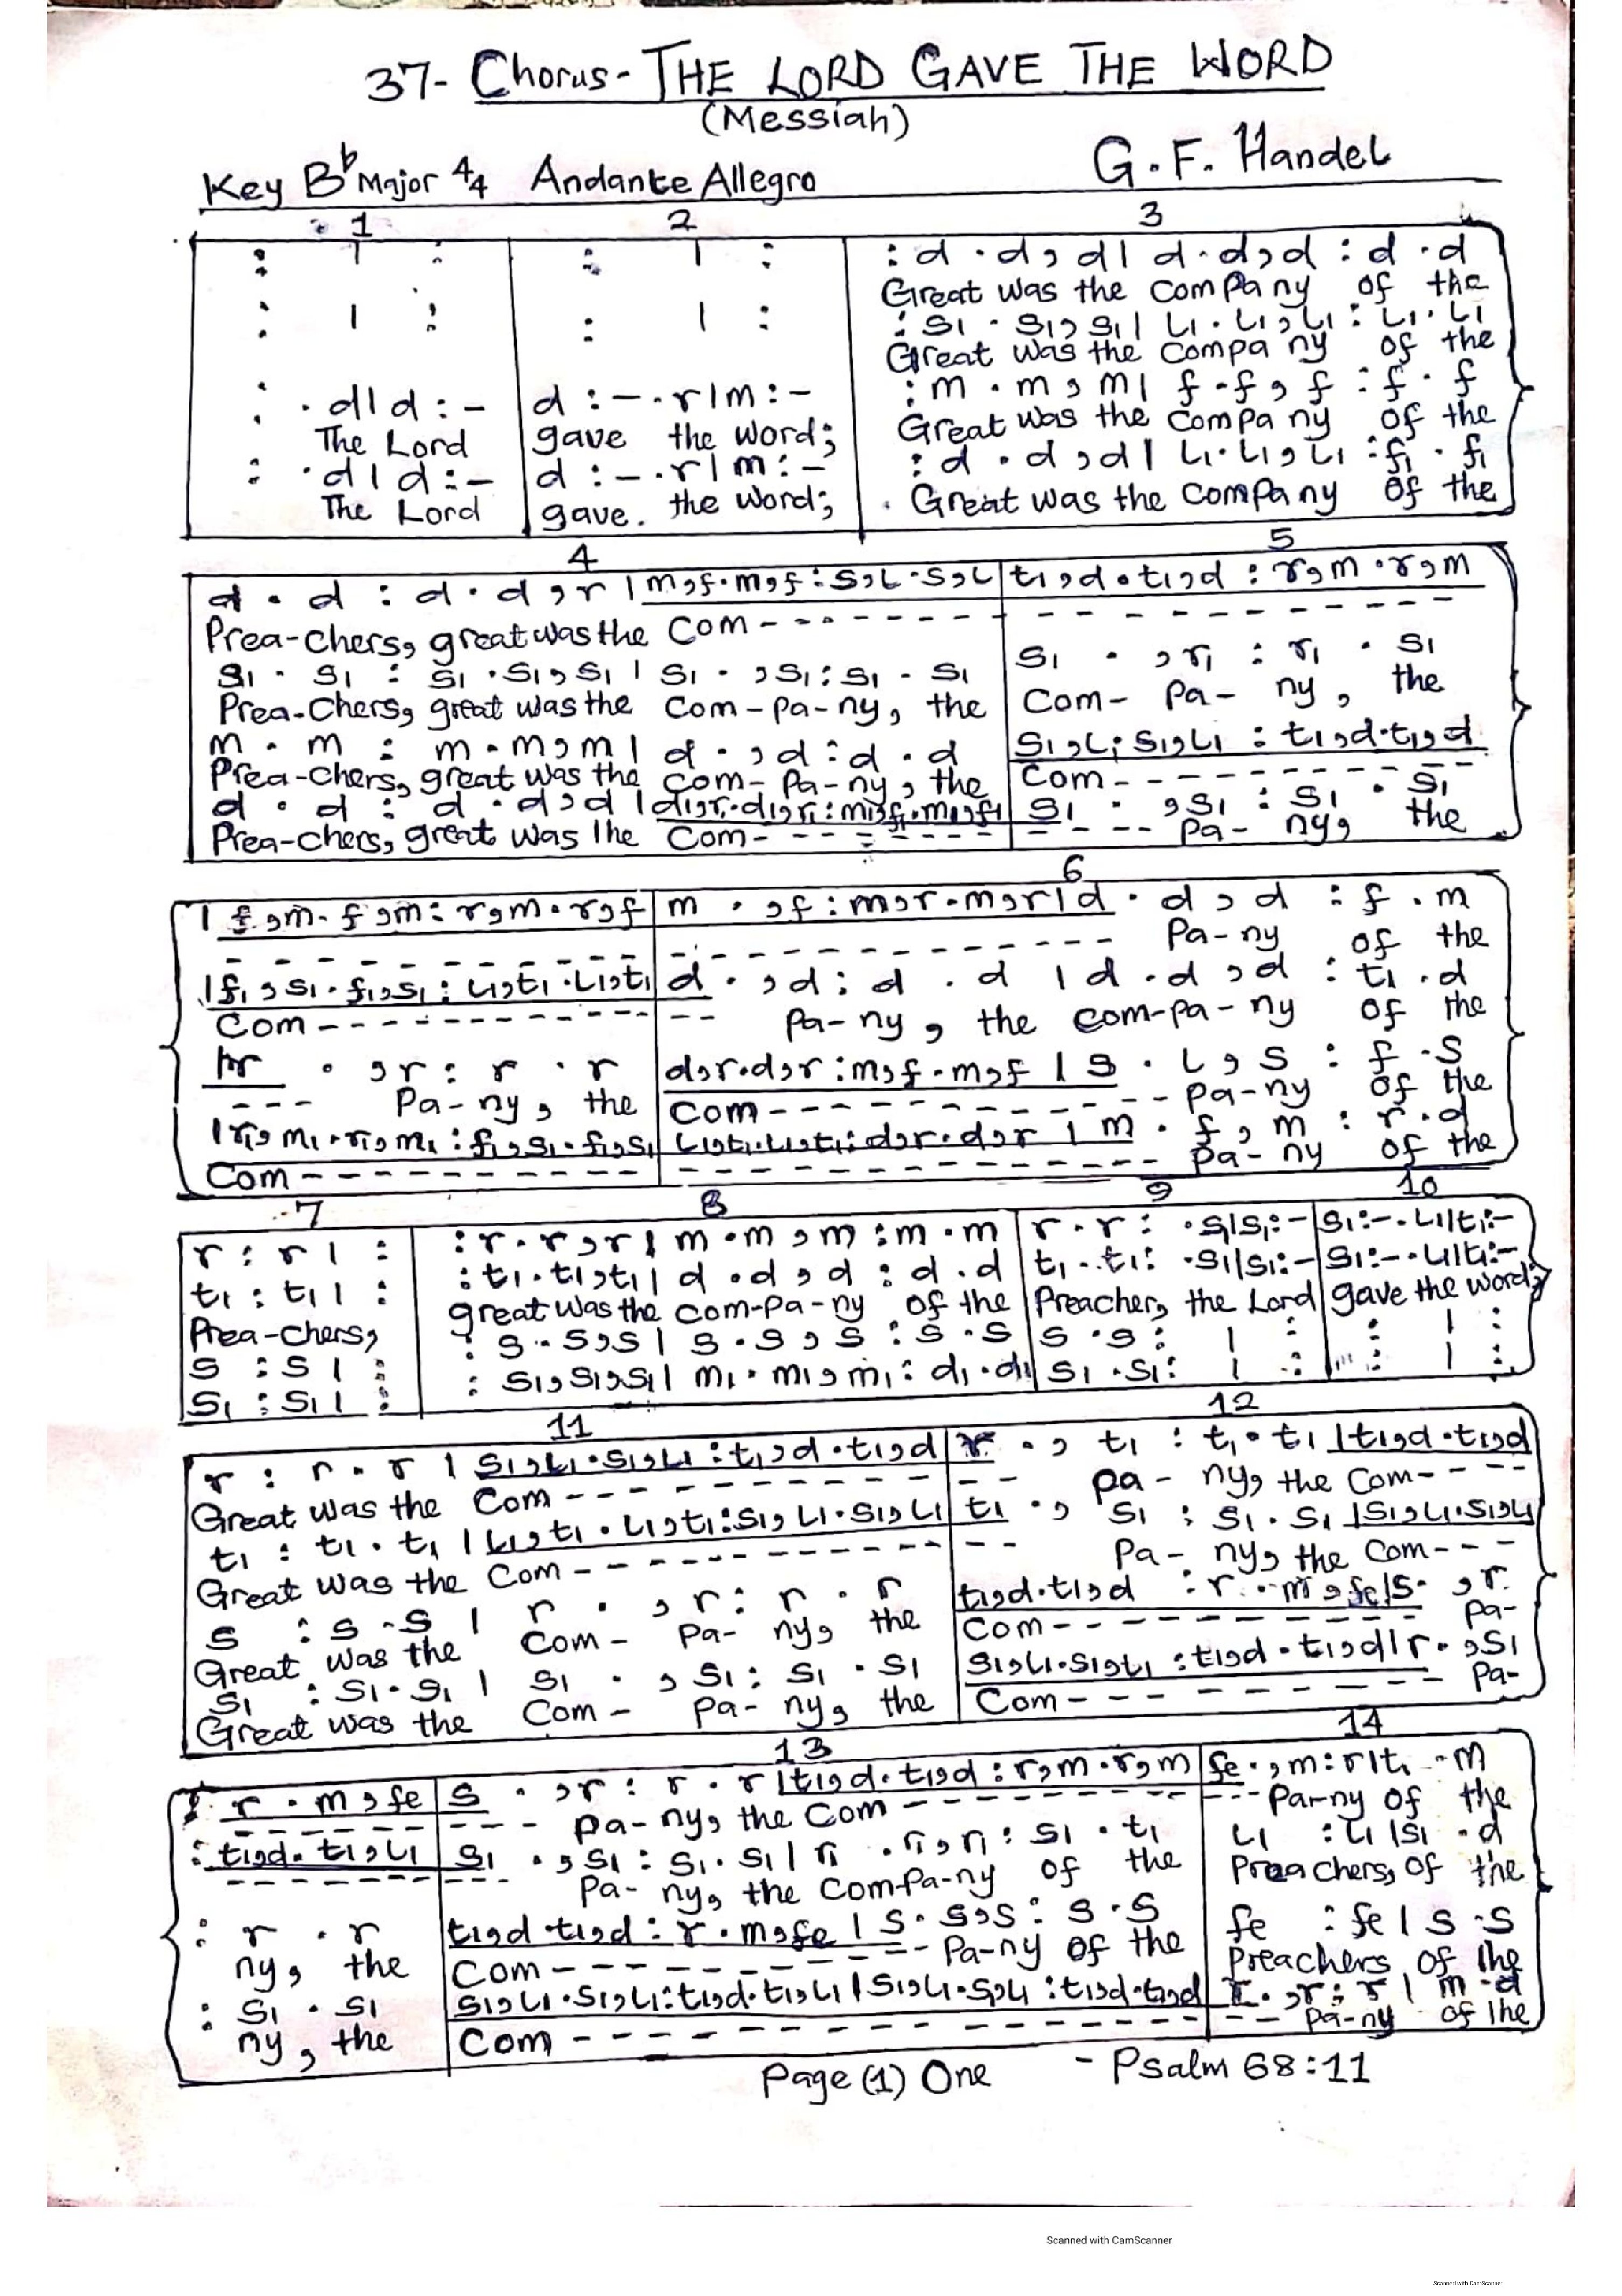 37- Chorus- THE LORD GAVE THE WORD
(Messiah)
Key Bb Major 4/4 Andante Allegro G. F. Handel
1 2 3
: | : : | : : d . d , d | d . d , d : d . d
Great was the Company of the
: | : : | : : s₁ . s₁ , s₁ | l₁ . l₁ , l₁ : l₁ . l₁
Great was the Compa ny of the
: . d | d : – d : – . r | m : – : m . m , m | f . f , f : f . f
The Lord gave the word; Great was the Compa ny of the
: . d | d : – d : – . r | m : – : d . d , d | l₁ . l₁ , l₁ : f₁ . f₁
The Lord gave. the word; Great was the Company of the
4 5
d . d : d . d , r | m , f . m , f : s , l . s , l | t₁ , d . t₁ , d : r , m . r , m
Prea-chers, great was the Com - - - - - - -
s₁ . s₁ : s₁ . s₁ , s₁ | s₁ . , s₁ : s₁ . s₁ s₁ . , r₁ : r₁ . s₁
Prea-chers, great was the Com-pa-ny, the Com- Pa- ny, the
m . m : m . m , m | d . , d : d . d s₁ , l₁ : s₁ , l₁ : t₁ , d . t₁ , d
Prea-chers, great was the Com-Pa-ny, the Com - - - - - - - -
d . d : d . d , d | d₁ , r₁ . d₁ , r₁ : m₁ , f₁ . m₁ , f₁ s₁ . , s₁ : s₁ . s₁
Prea-chers, great was the Com- - - - - - - - - - Pa- ny, the
6
| f , m . f , m : r , m . r , f | m . , f : m , r . m , r | d . d , d : f . m
Pa-ny of the
| f₁ , s₁ . f₁ , s₁ : l₁ , t₁ . l₁ , t₁ | d . , d : d . d | d . d , d : t₁ . d
Com - - - - - - - - - - - - Pa-ny, the Com-pa-ny of the
r . , r : r . r d , r . d , r : m , f . m , f | s . l , s : f . s
- - - Pa-ny, the Com - - - - - - - - - - Pa-ny of the
| r₁ , m₁ . r₁ , m₁ : f₁ , s₁ . f₁ , s₁ | l₁ , t₁ . l₁ , t₁ : d , r . d , r | m . f , m : r . d
Com - - - - - - - - - - - - - - - - - - Pa-ny of the
7 8 9 10
r : r | : : r . r , r | m . m , m : m . m | r . r : . s₁ | s₁ : – | s₁ : – . l₁ | t₁ : –
t₁ : t₁ | : : t₁ . t₁ , t₁ | d . d , d : d . d | t₁ . t₁ : . s₁ | s₁ : – | s₁ : – . l₁ | t₁ : –
Prea-chers, great was the com-pa-ny of the Preachers, the Lord gave the word;
s : s | : : s . s , s | s . s , s : s . s | s . s : | : : | :
s₁ : s₁ | : : s₁ , s₁ , s₁ | m₁ . m₁ , m₁ : d₁ . d₁ | s₁ . s₁ : | : : | :
11 12
r : r . r | s₁ , l₁ . s₁ , l₁ : t₁ , d . t₁ , d | r . , t₁ : t₁ . t₁ | t₁ , d . t₁ , d
Great was the Com - - - - - - - - - - - pa - ny, the Com- - - -
t₁ : t₁ . t₁ | l₁ , t₁ . l₁ , t₁ : s₁ , l₁ . s₁ , l₁ | t₁ . , s₁ : s₁ . s₁ | s₁ , l₁ . s₁ , l₁
Great was the Com - - - - - - - - - - - Pa - ny, the Com- - -
s : s . s | r . , r : r . r t₁ , d . t₁ , d : r . m , fe | s . , r
Great was the Com- Pa- ny, the Com - - - - - - - - - Pa-
s₁ : s₁ . s₁ | s₁ . , s₁ : s₁ . s₁ s₁ , l₁ . s₁ , l₁ : t₁ , d . t₁ , d | r . , s₁
Great was the Com - Pa- ny, the Com - - - - - - - - Pa-
13 14
: r . m , fe | s . , r : r . r | t₁ , d . t₁ , d : r , m . r , m | fe . , m : r | t₁ . m
- - - - - - - - - - pa-ny, the Com - - - - - - - - - - - - Pa-ny of the
: t₁ , d . t₁ , l₁ | s₁ . , s₁ : s₁ . s₁ | r₁ . r₁ , r₁ : s₁ . t₁ l₁ : l₁ | s₁ . d
- - - - - - - - - - Pa- ny, the Com-Pa-ny of the Preachers, of the
: r . r t₁ , d . t₁ , d : r . m , fe | s . s , s : s . s fe : fe | s . s
ny, the Com - - - - - - - - - - Pa-ny of the Preachers of the
: s₁ . s₁ s₁ , l₁ . s₁ , l₁ : t₁ , d . t₁ , l₁ | s₁ , l₁ . s₁ , l₁ : t₁ , d . t₁ , d | r . , r : r | m . d
ny, the Com - - - - - - - - - - - - - - - - Pa-ny of the
Page (1) One - Psalm 68:11
Scanned with CamScanner
Scanned with CamScanner